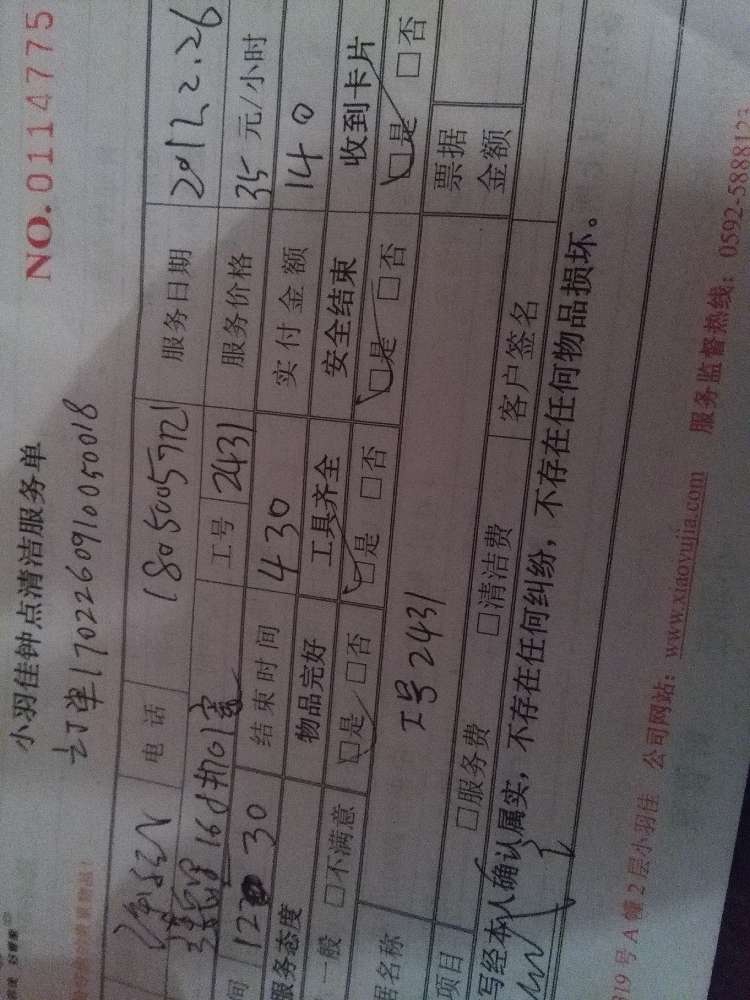 NO. 0114775
小羽佳钟点清洁服务单
订单1702260910050018
电话 服务日期 2017.2.26
工号 2431 服务价格 35元/小时
间 12 30 结束时间 430 实付金额 140
服务态度 物品完好 工具齐全 安全结束 收到卡片
一般 □不满意 □是 □否 □是 □否 □是 □否 □是 □否
据名称 工号2431 票据金额
项目 □服务费 □清洁费
写经本人确认属实，不存在任何纠纷，不存在任何物品损坏。
客户签名
19号A幢2层小羽佳 公司网站：www.xiaoyujia.com 服务监督热线：0592-5888123